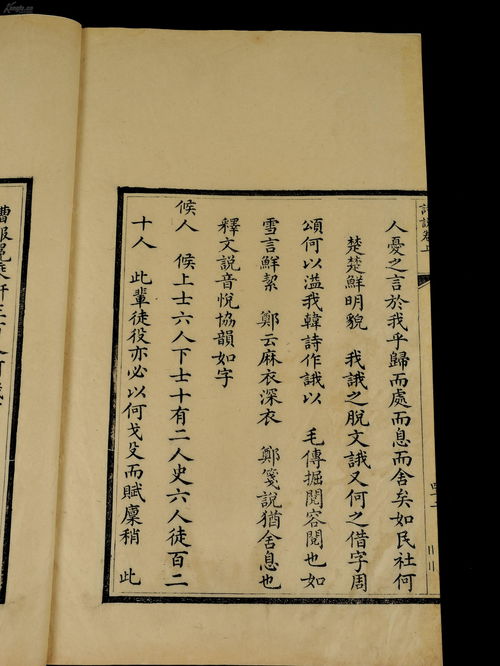 人憂之言於我乎歸而處而息而舍矣如民社何
楚楚鮮明貌 我誐之脫文誐又何之借字周
頌何以溢我韓詩作誐以 毛傳掘閱容閱也如
雪言鮮絜 鄭云麻衣深衣 鄭箋說猶舍息也
釋文說音悅協韻如字
候人 候上士六人下士十有二人史六人徒百二
十人 此輩徒役亦必以何戈殳而賦廩稍 此